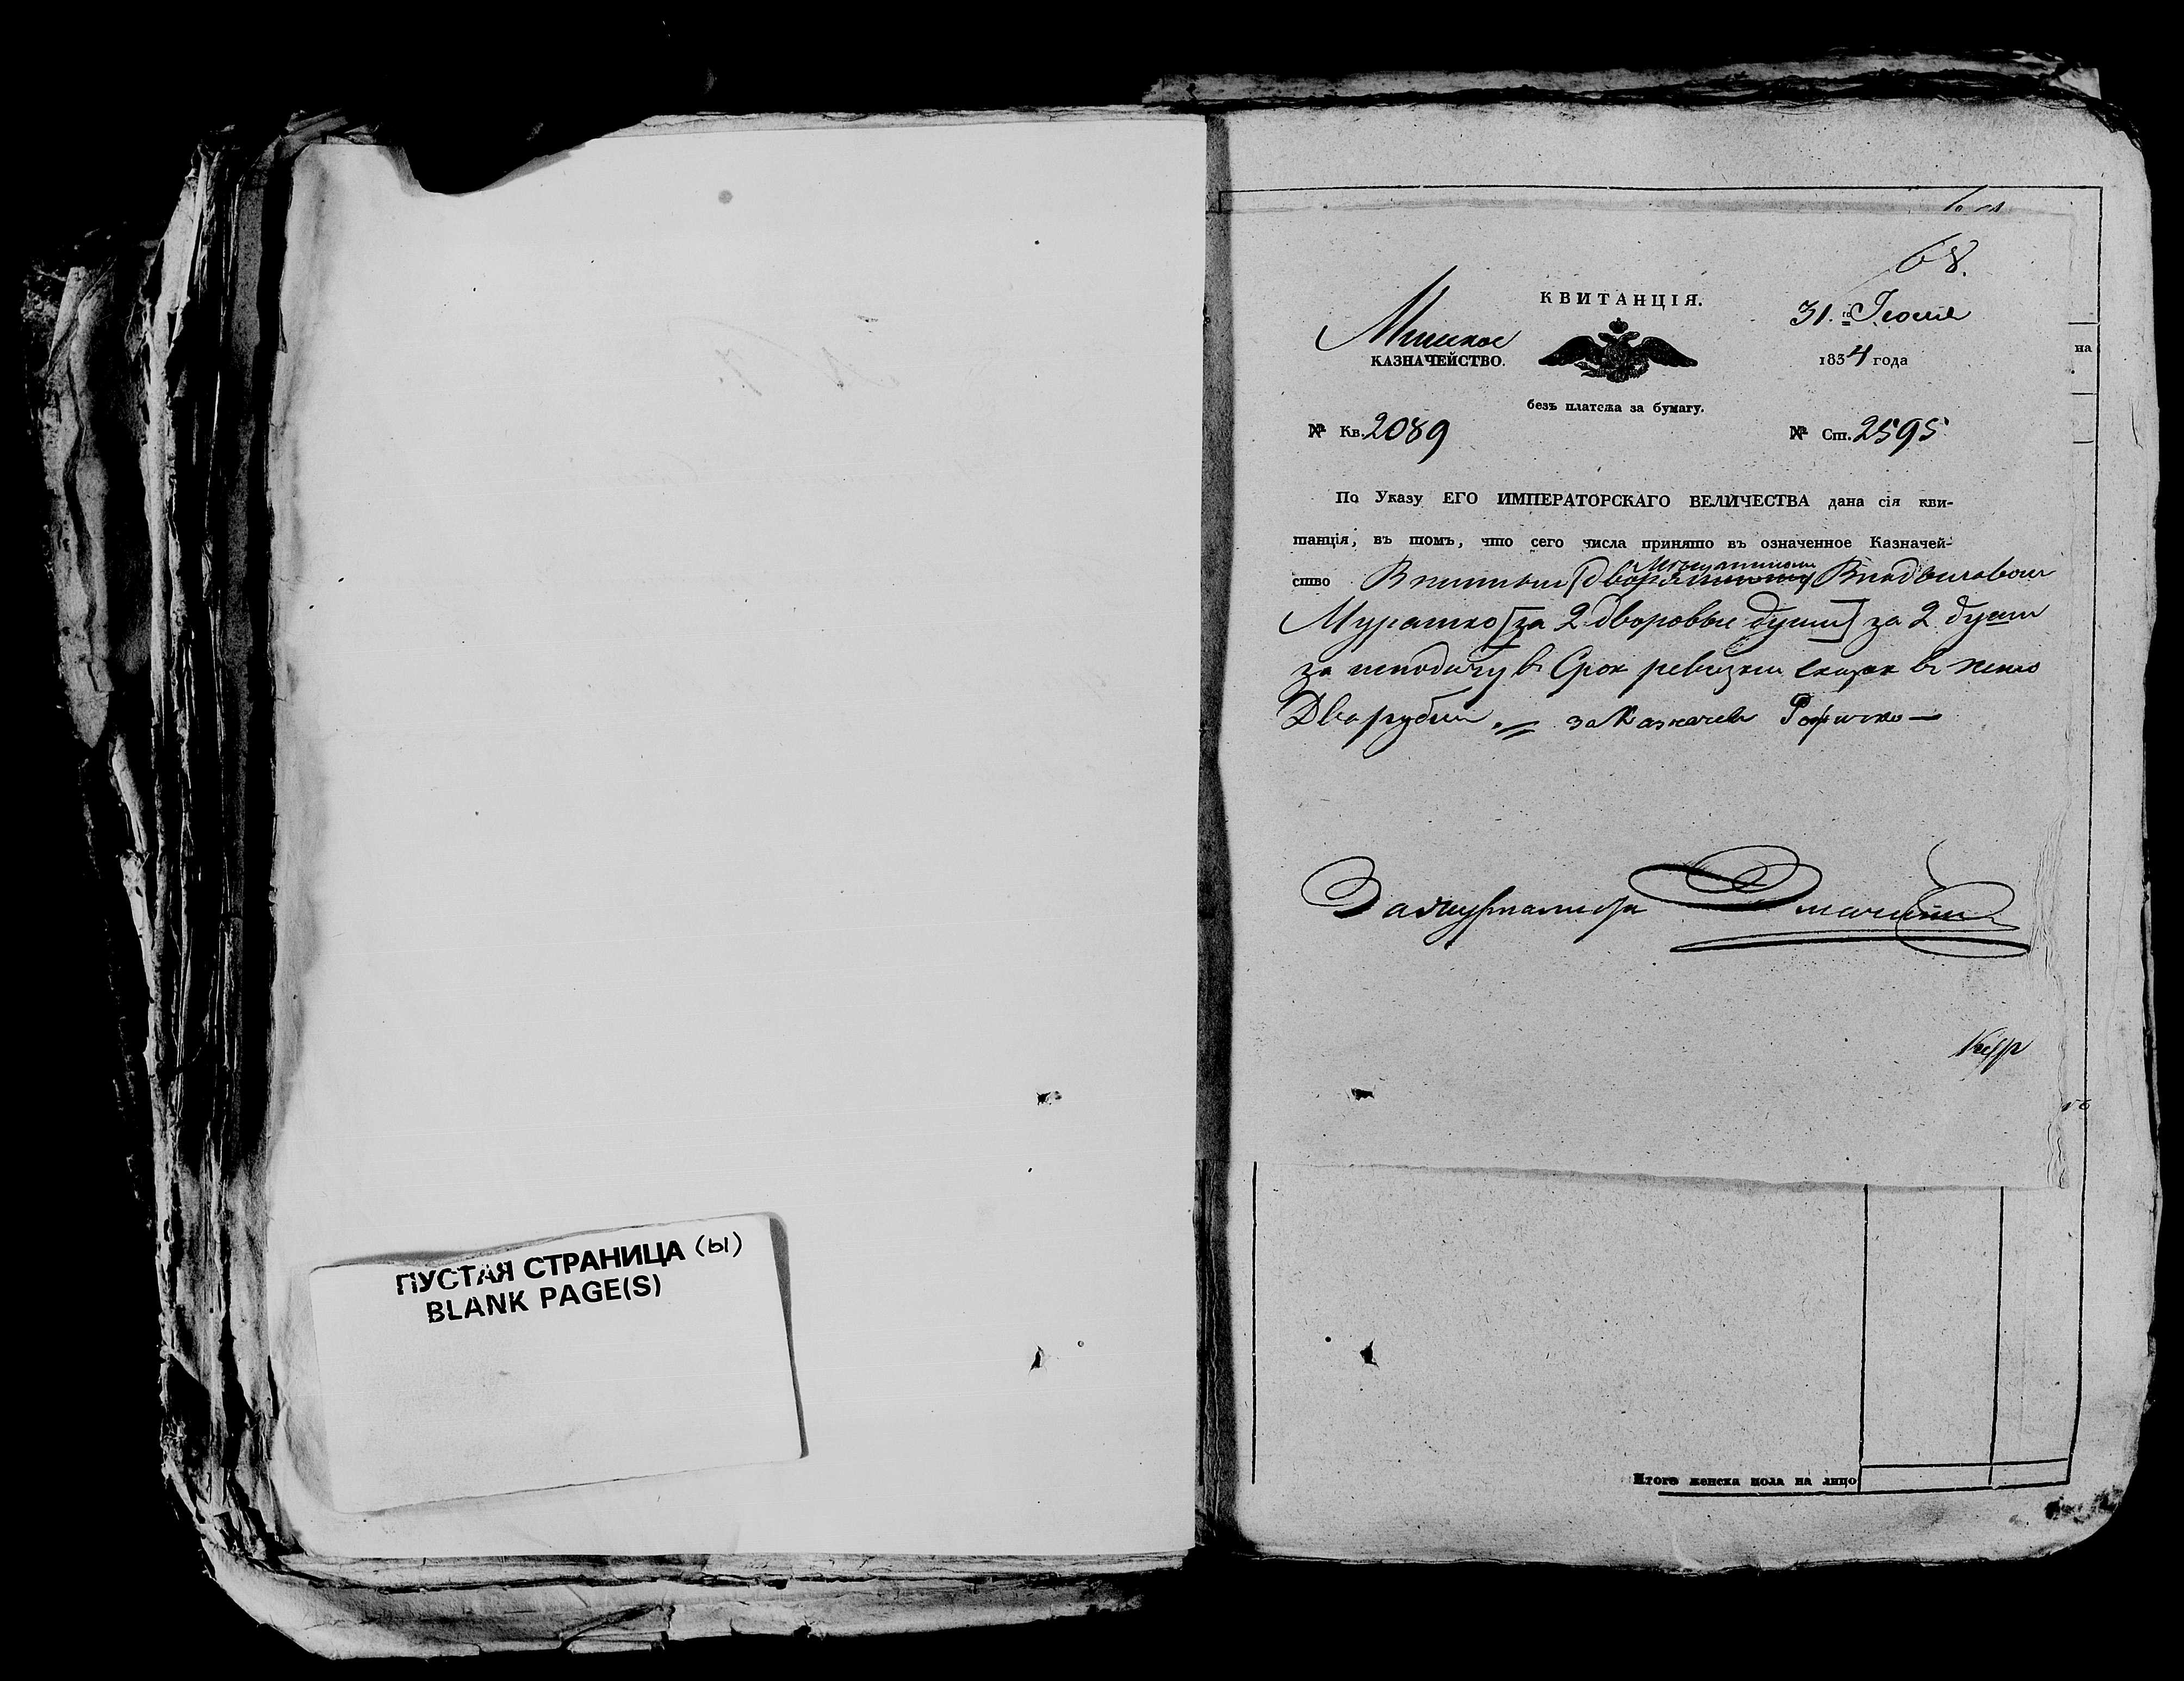 ПУСТАЯ СТРАНИЦА (ы)
BLANK PAGE(S)
68.
КВИТАНЦІЯ.
Минское
КАЗНАЧЕЙСТВО.
31.го
1834 года
на
безъ платежа за бумагу.
№ Кв. 2089
№ Ст. 2595
По Указу ЕГО ИМПЕРАТОРСКАГО ВЕЛИЧЕСТВА дана сія кви-
танція, въ томъ, что сего числа принято въ означенное Казначей-
ство
Мурашко [за 2 дворовые души] за 2 души
за неподачу в Срок ревизкои сказок в пеню
Два рубли. за Казначея
Итого женска пола на лицо